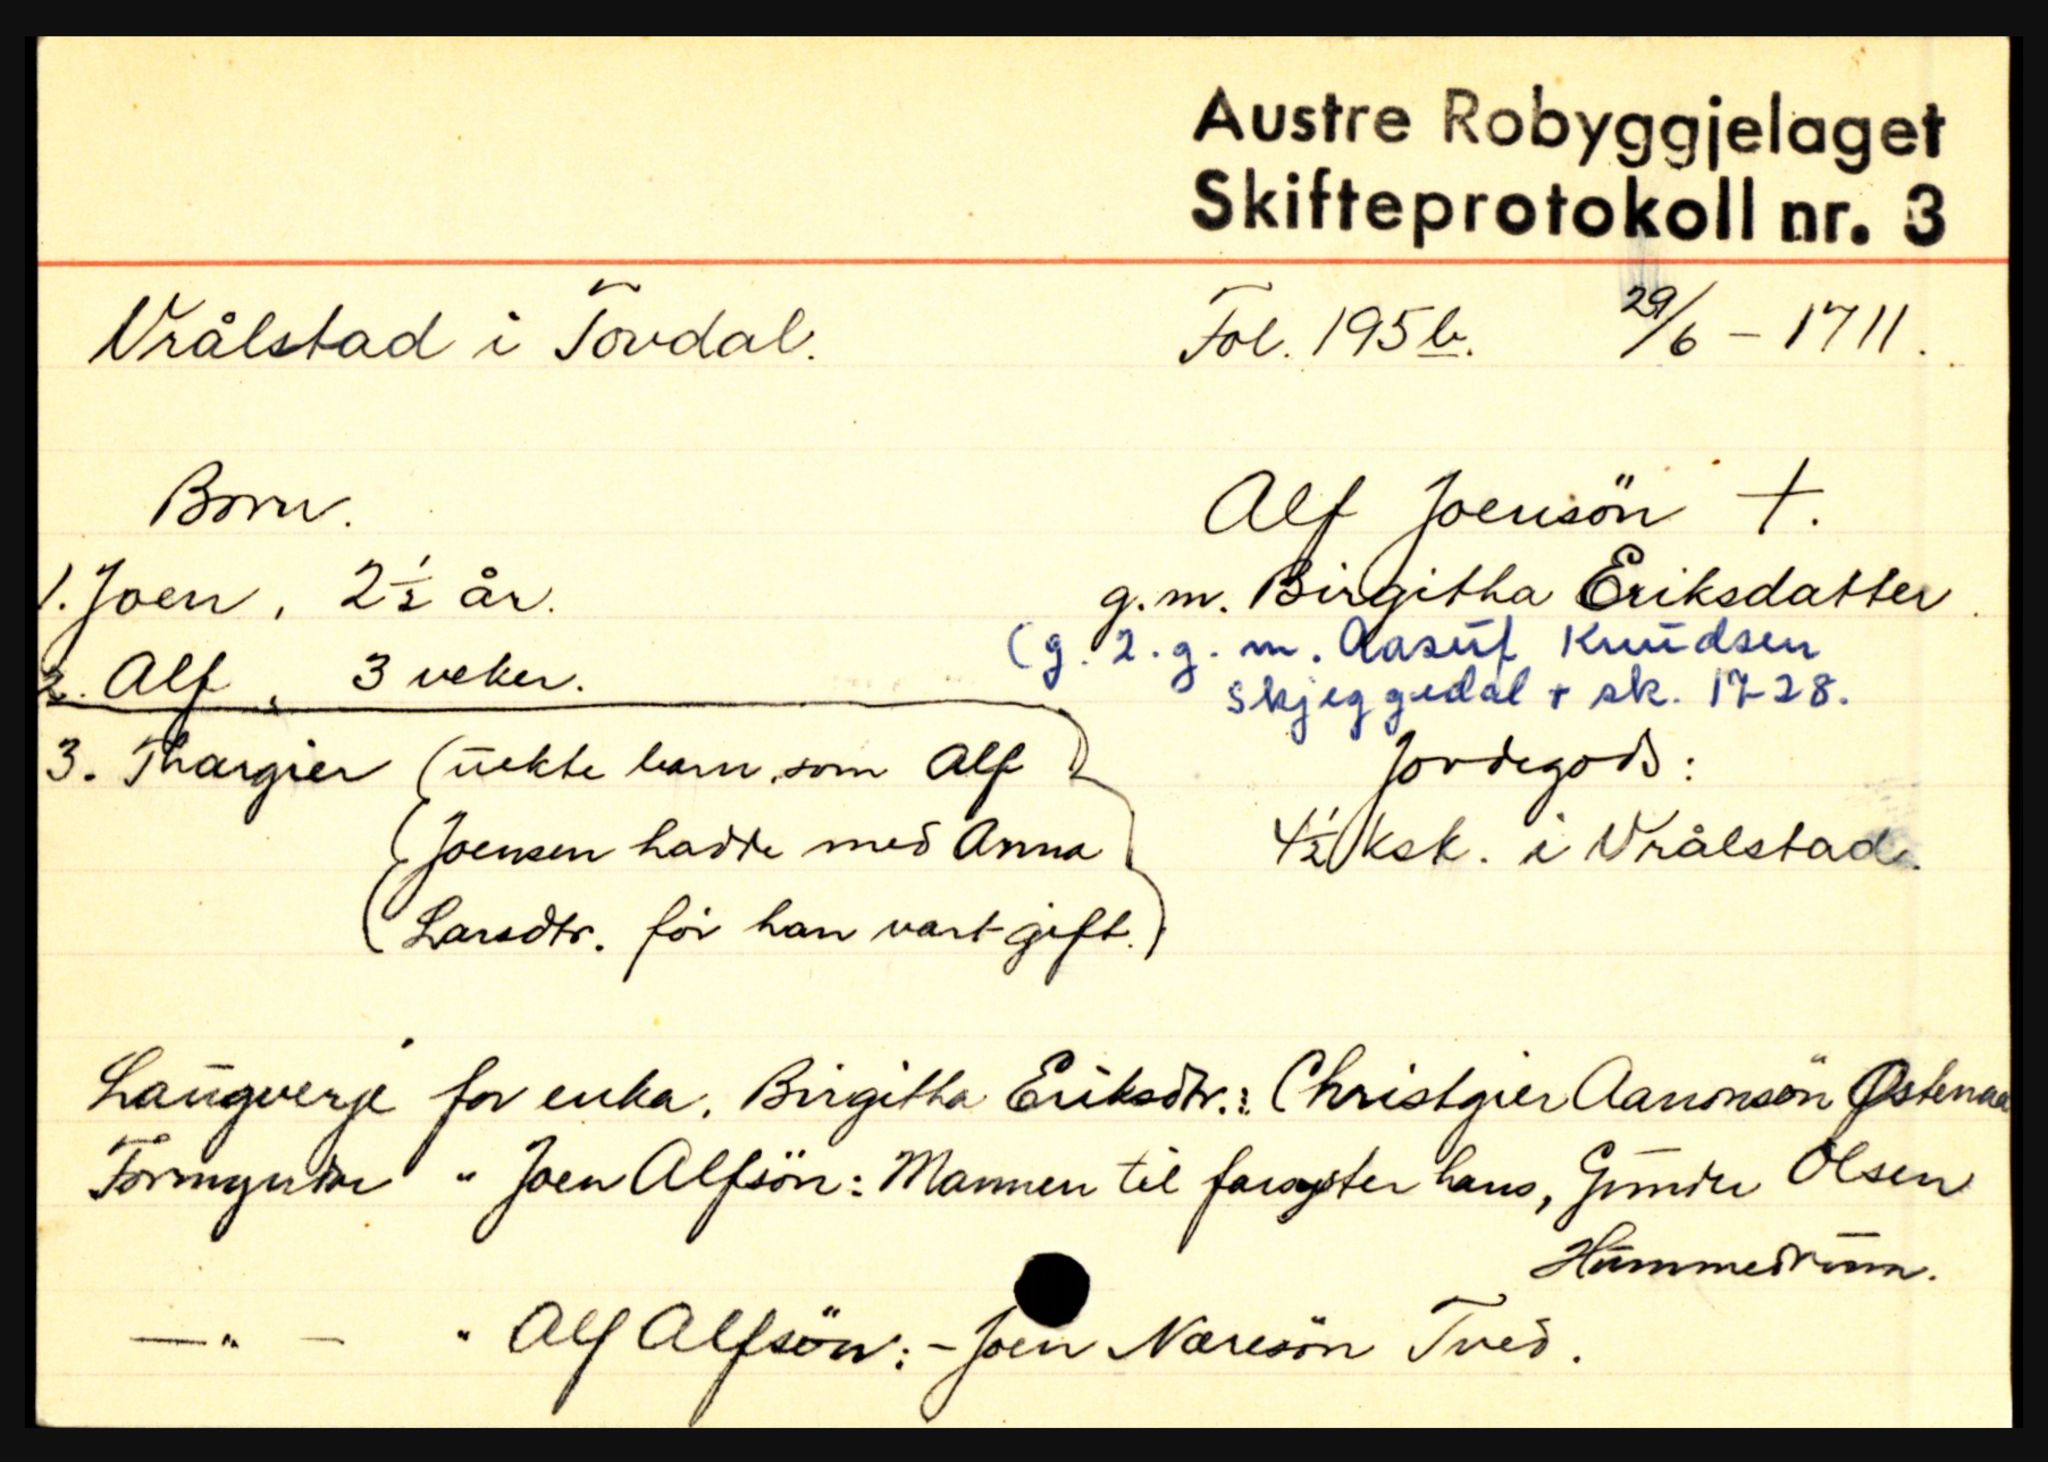 Austre Robyggjelaget
Skifteprotokoll nr. 3
Vrålstad i Tovdal. Fol. 195 b. 29/6 – 1711.
Born. Alf Joensön †.
1. Joen, 2½ år. g.m. Birgitha Eriksdatter
(g. 2. g. m. Aasuf Knudsen
2. Alf, 3 veker.
Skjeggedal + sk. 1728.
3. Thargier (uekte barn som Alf Jordegods:
(Joensen hadde med Anna 4½ ksk. i Vrålstad.
(Larsdtr. för han vart gift.)
Laugverje for enka, Birgitha Eriksdtr.: Christgier Aanonsön Østenaa
Formyndar " Joen Alfsön: Mannen til farsyster hans, Gunder Olsen
Hummedrum.
— " — " Alf Alfsön: – Joen Næresön Tved.